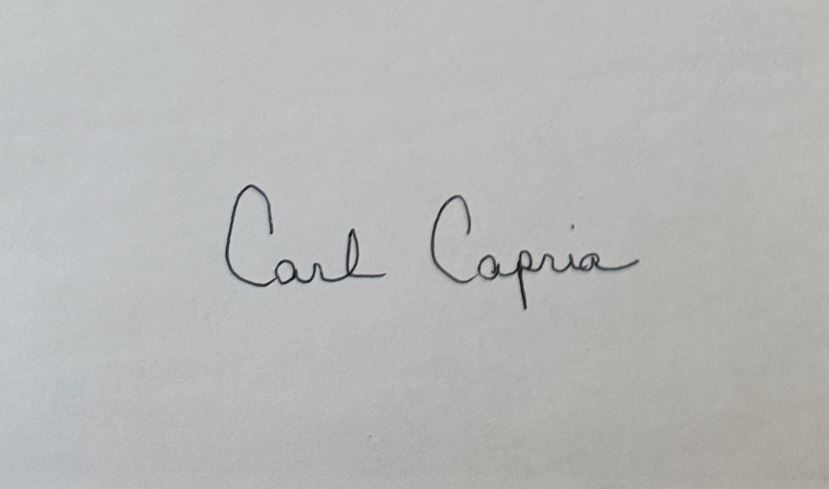 Carl Capria